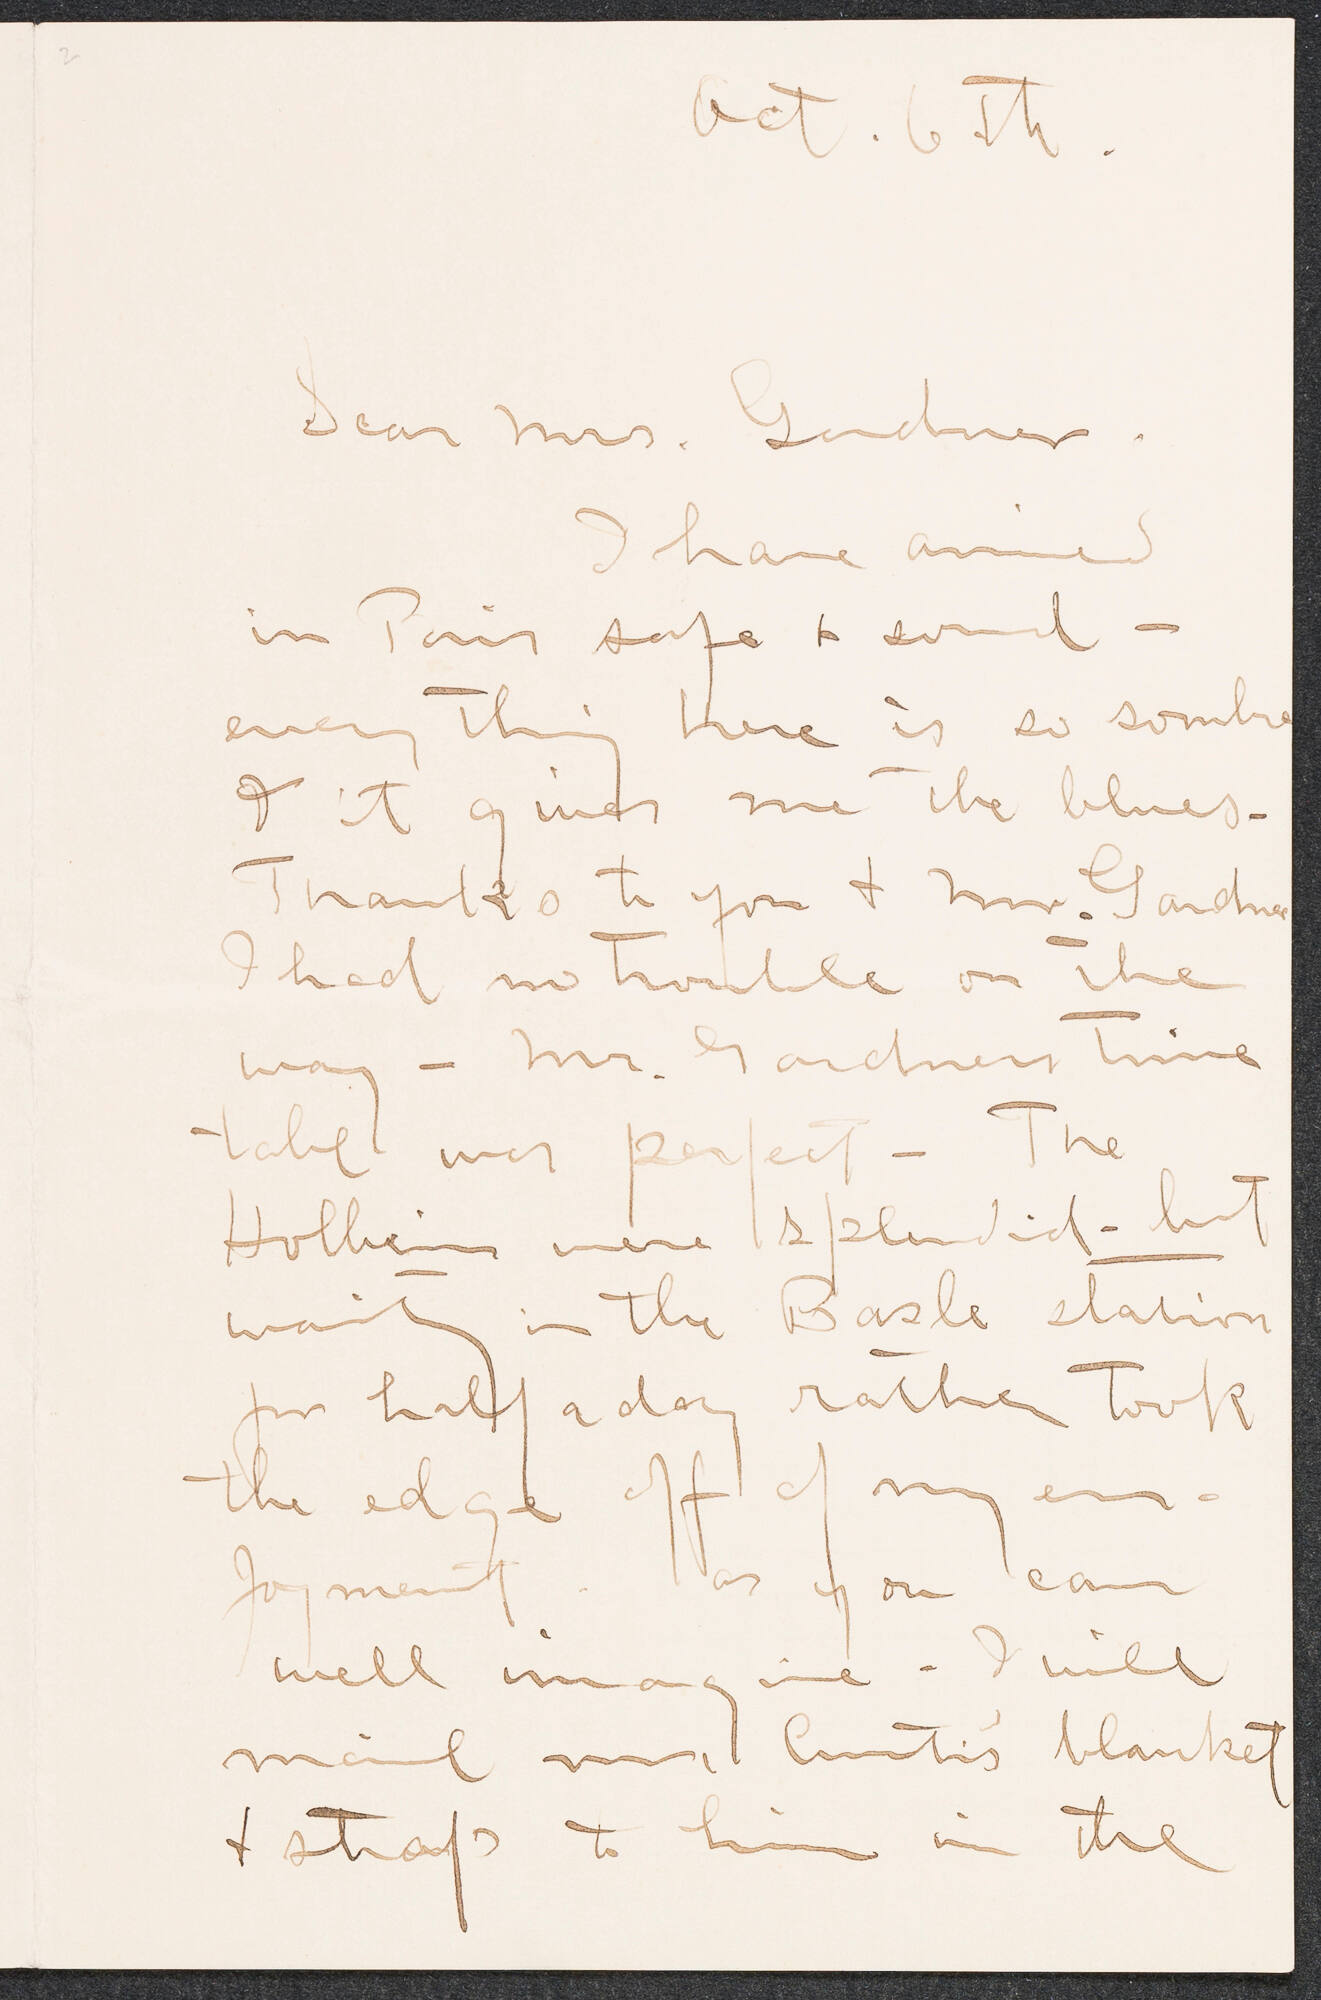 2
Oct. 6th.
Dear Mrs. Gardner.
I have arrived
in Paris safe & sound -
every thing here is so sombre
& it gives me the blues -
Thanks to you & Mr. Gardner
I had no trouble on the
way - Mr. Gardners time
table was perfect - The
Holbeins were splendid - but
waiting in the Basle station
for half a day rather took
the edge off of my en-
joyment. as you can
well imagine - I will
mail Mr. Curtis's blanket
& straps to him in the